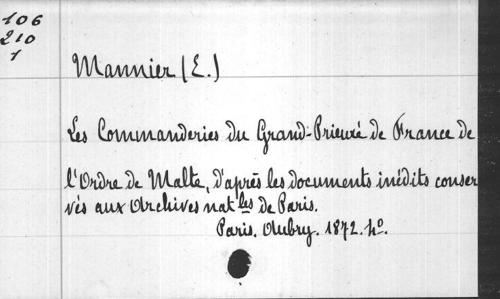 106
210
1
Mannier (E.)
Les Commanderies du Grand-Prieuré de France de
l'Ordre de Malte, d'après les documents inédits conser
vés aux Archives nat^les de Paris.
Paris. Aubry. 1872. 4º.